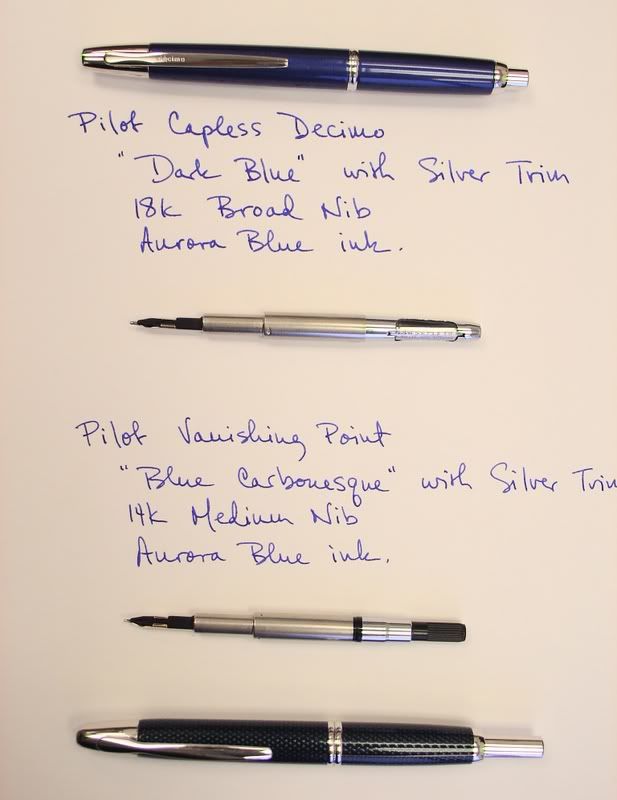 decimo
Pilot Capless Decimo
"Dark Blue" with Silver Trim
18k Broad Nib
Aurora Blue ink.
Pilot Vanishing Point
"Blue Carbonesque" with Silver Trim
14k Medium Nib
Aurora Blue ink.